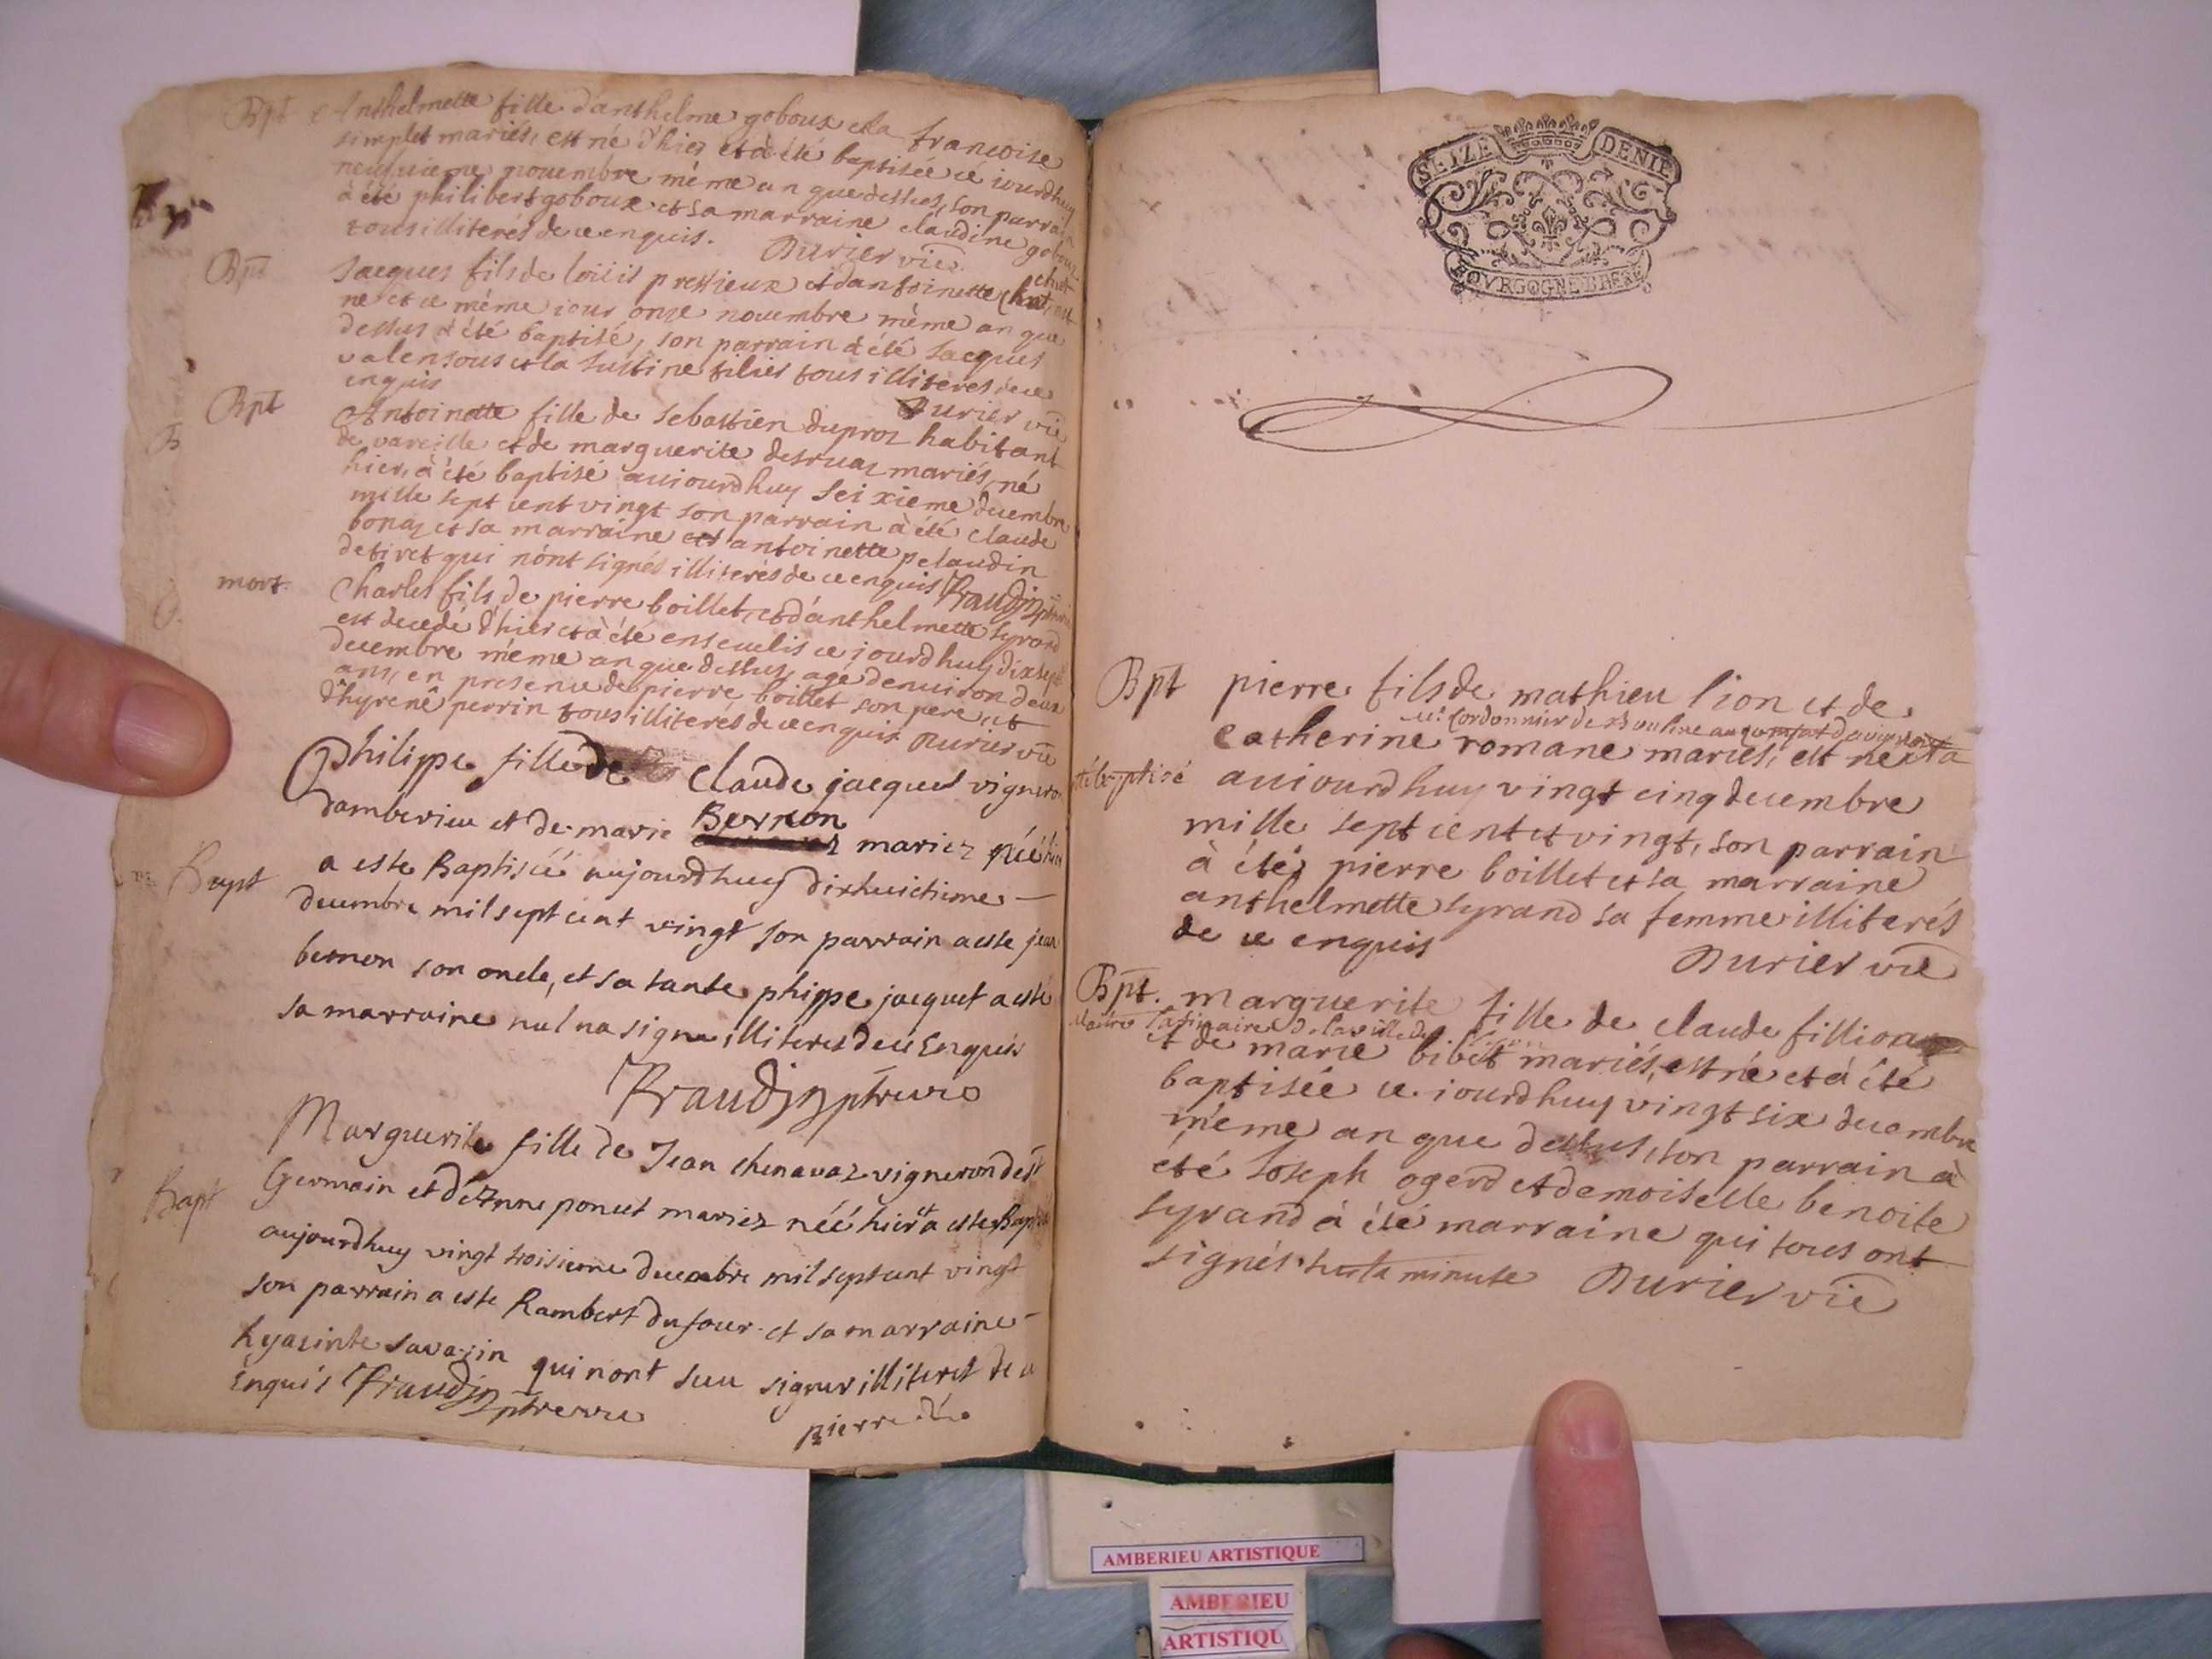 Bpt Anthelmette fille d'anthelme goboux et la francoise
simplet mariés, est né d'hier et à été baptisée ce iourdhuy
neufuieme nouembre même an que dessus, son parrain
à été philibert goboux et sa marraine claudine goboux
tous illiterés de ce enquis. Durier vic
Bpt Jacques fils de loüis pressieux et d'antoinette chut, est
né et ce même iour onze nouembre même an que
dessus à été baptisé, son parrain à été Jacques
valensous et la Justine filies tous illiteres de ce
enquis Durier vic
Bpt Antoinette fille de sebastien duproz habitant
de vareille et de marguerite desruaz mariés, né
hier, à été baptisé auiourdhuy seixieme decembre
mille sept cent vingt son parrain à été claude
bonaz et sa marraine antoinette pelaudin
detiret qui nont signés illiterés de ce enquis Fraudin
mort. Charles fils de pierre boillet, et d'anthelmette syrand
est decedé d'hier et à été enseuelis ce jourdhuy dixsept
decembre même an que dessus, agé denuiron deux
ans, en presence de pierre boillet son pere, et
d'hyrenê perrin tous illiterés de ce enquis Durier vic
Philippe fille de claude jacquet vigneron
damberieu et de marie Bernon mariez néé hier
Bapt a este Baptiséé aujourdhuy dixhuictieme
decembre mil sept cent vingt son parrain a este jean
bernon son oncle, et sa tante phippe jacquet a esté
sa marraine nul na signe illiteres de ce Enquis
Fraudin ptre vic
Marguerite fille de Jean chenavaz vigneron de st
Germain et d'Anne poncet mariez néé hier et a este Bapt
Bapt aujourdhuy vingt troisieme decembre mil sept cent vingt
son parrain a este Rambert dufour et sa marraine
hyacinte savarin qui nont sceu signer illiteret de ce
Enquis Fraudin ptre vic
SEIZE DENIE
BOVRGOGNE BRESSE
Bpt pierre fils de mathieu lion et de
mr. Cordonnier de
catherine romane mariés, est né et à
été baptisé auiourdhuy vingt cinq decembre
mille sept cent et vingt, son parrain
à été pierre boillet et sa marraine
anthelmette syrand sa femme illiterés
de ce enquis Durier vic
Bpt. marguerite fille de claude fillion
de la ville de
et de marie bibet mariés, est né et à été
baptisée ce iourdhuy vingt six decembre
même an que dessus, son parrain à
eté Joseph ogerd et demoiselle benoite
syrand à été marraine qui tous ont
signés sur la minute Durier vic
AMBERIEU ARTISTIQUE
AMBERIEU
ARTISTIQU